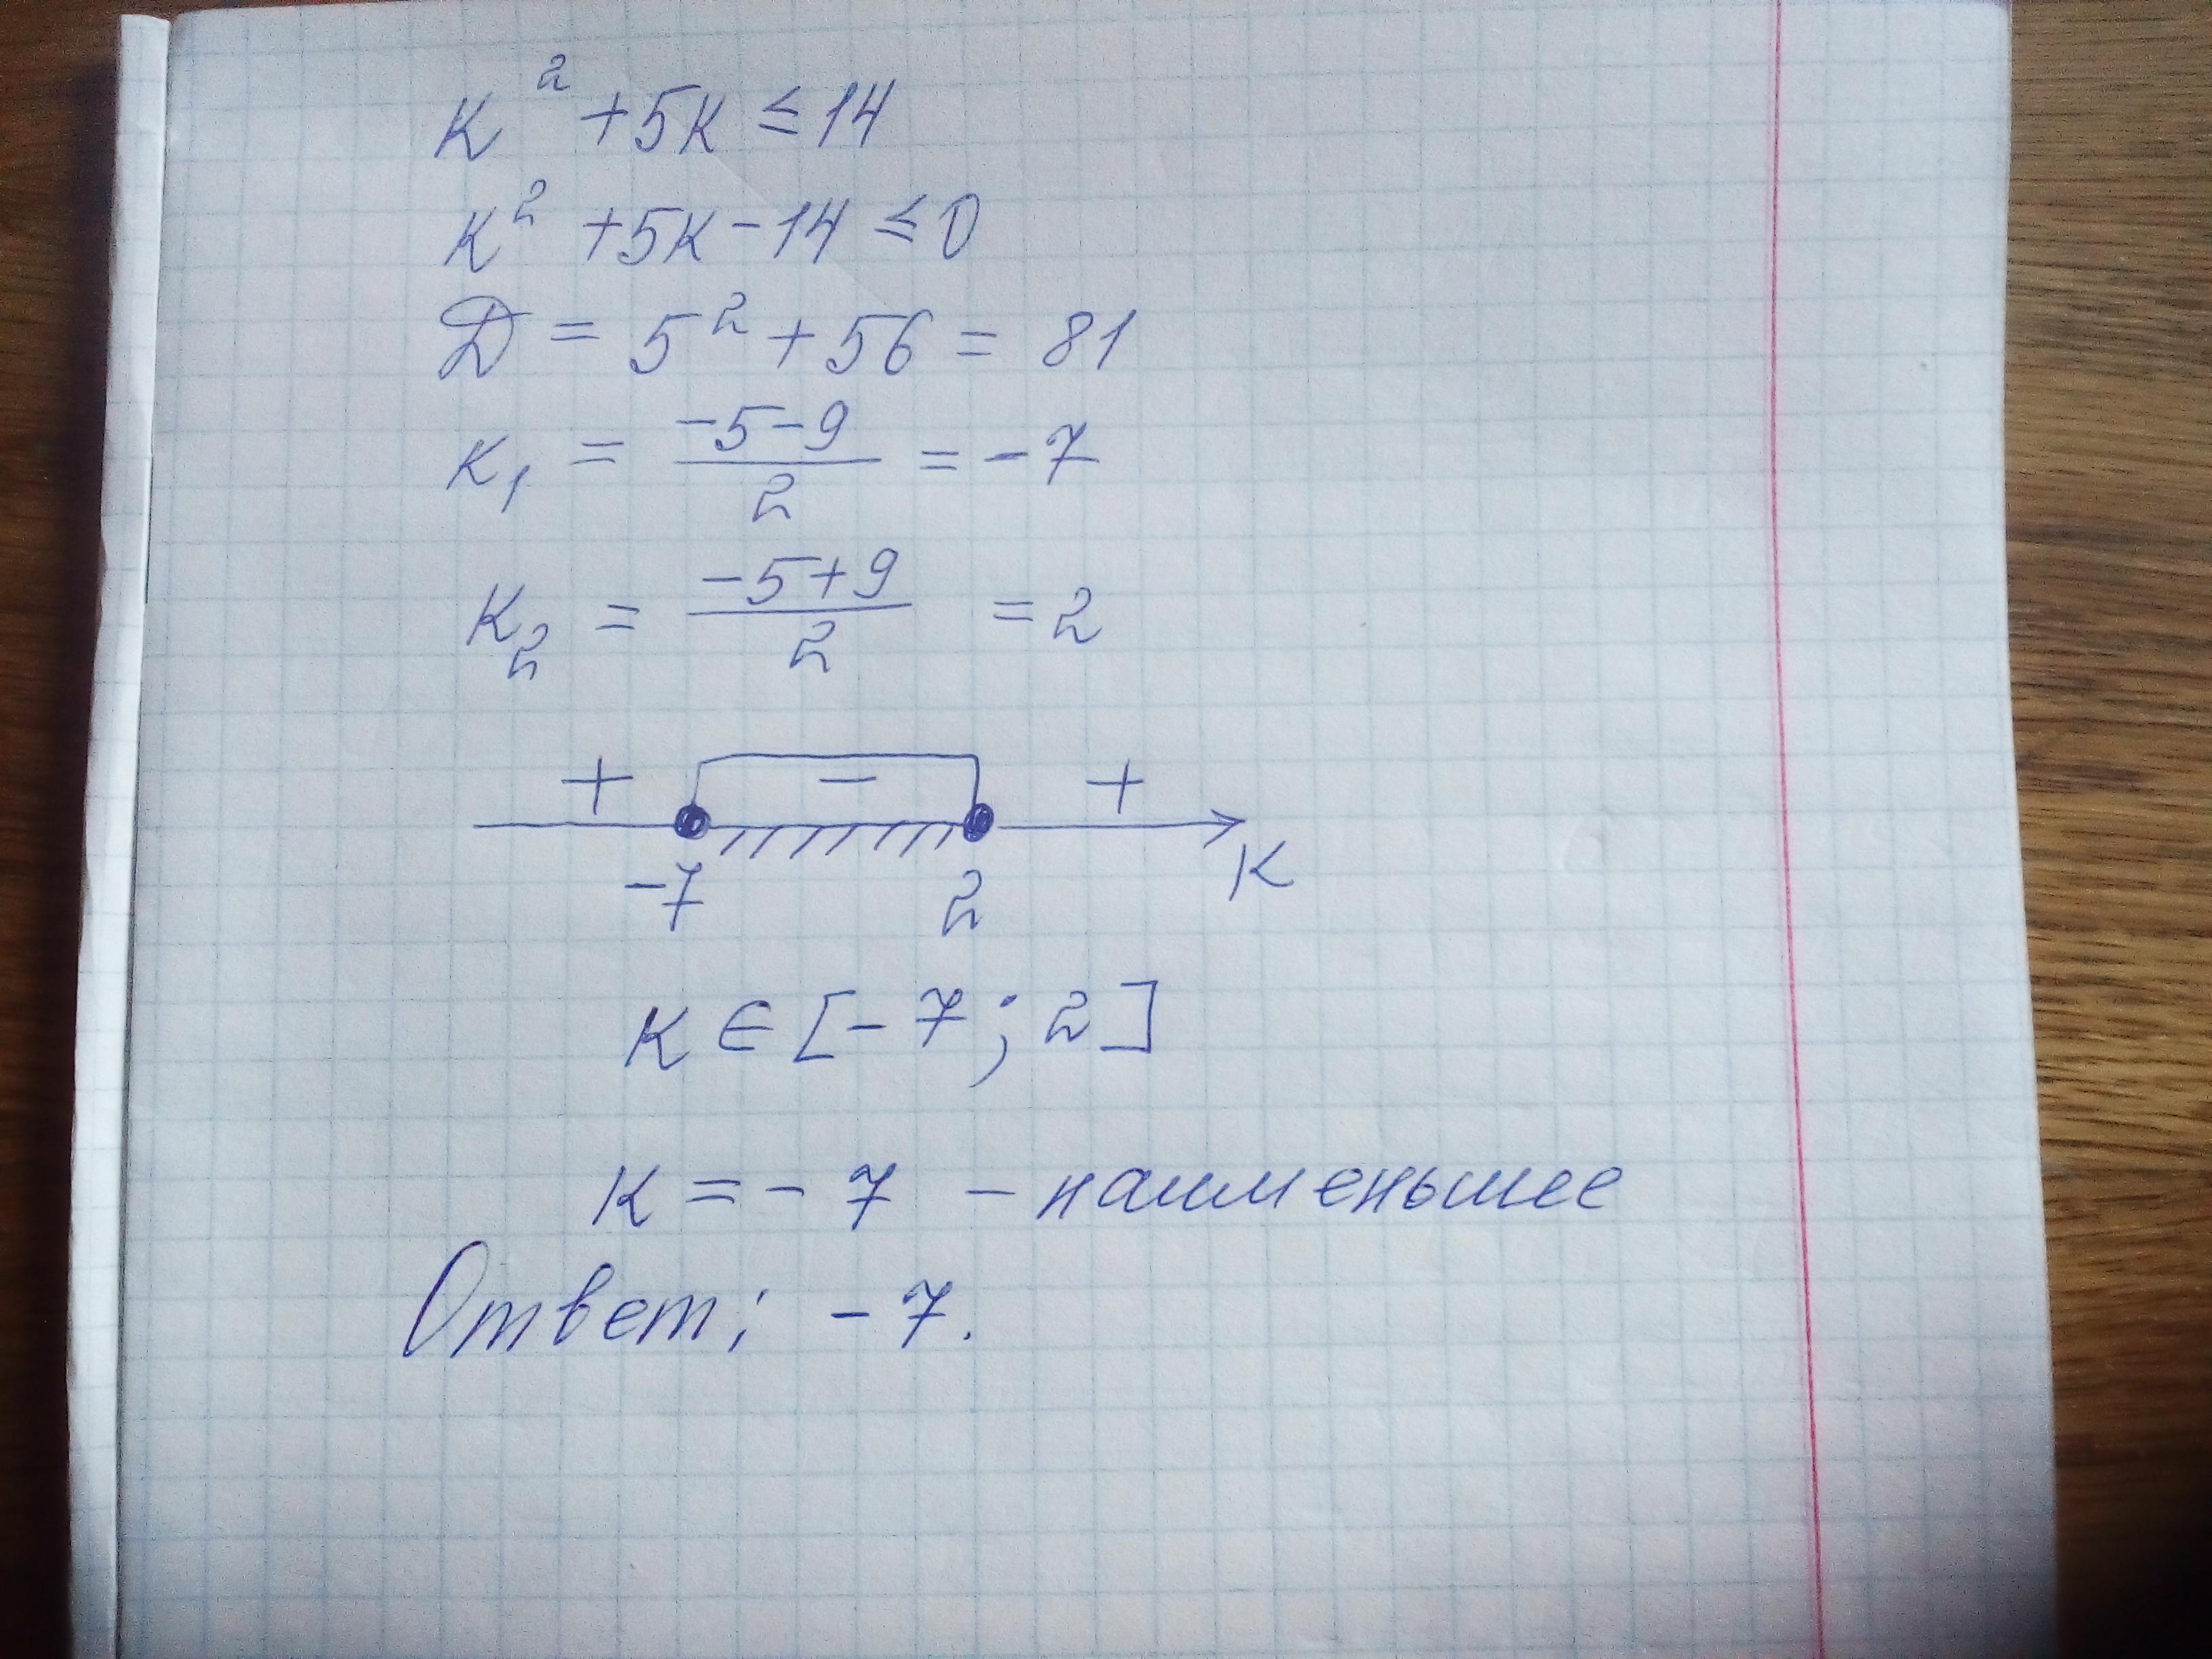 к² + 5к ≤ 14
к² + 5к - 14 ≤ 0
Д = 5² + 56 = 81
к₁ = (-5-9)/2 = -7
к₂ = (-5+9)/2 = 2
+ - +
-7 2 к
к ∈ [-7; 2]
к = -7 - наименьшее
Ответ: -7.